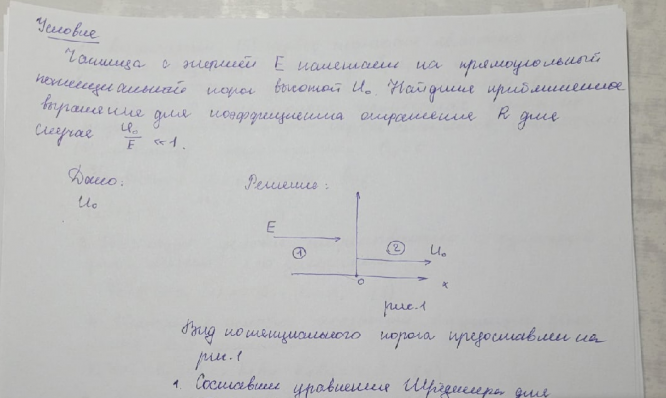 Условие
Частица с энергией E налетает на прямоугольный
потенциальный порог высотой U₀. Найдите приближенное
выражение для коэффициента отражения R для
случая U₀/E ≪ 1.
Дано: Решение:
U₀
E
① ② U₀
0 x
рис.1
Вид потенциального порога предоставлен на
рис.1
1. Составим уравнения Шрёдингера для